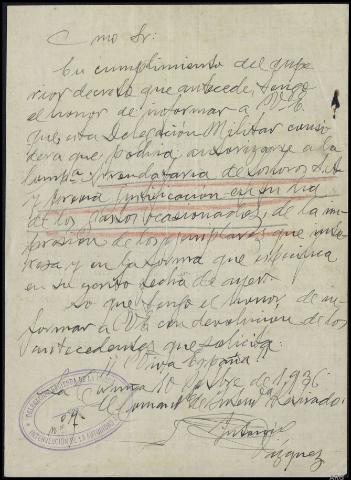 Cmo Sr:
En cumplimiento del supe-
rior decreto que antecede, tengo
el honor de informar a V.E.
que esta Delegación Militar consi-
dera que podria autorizarse a la
Arrendataria de
y previa justificación en su dia
de los gastos ocasionados, de la im-
presión de los ejemplares que inte-
resa y en la forma que especifica
en su escrito fecha de ayer.
Lo que tengo el honor de in-
formar a VE con devolucion de los
antecedentes que solicita.
¡¡Viva España!!
La Coruña 10 Octubre de 1936
El Comand
Antonio
Vázquez